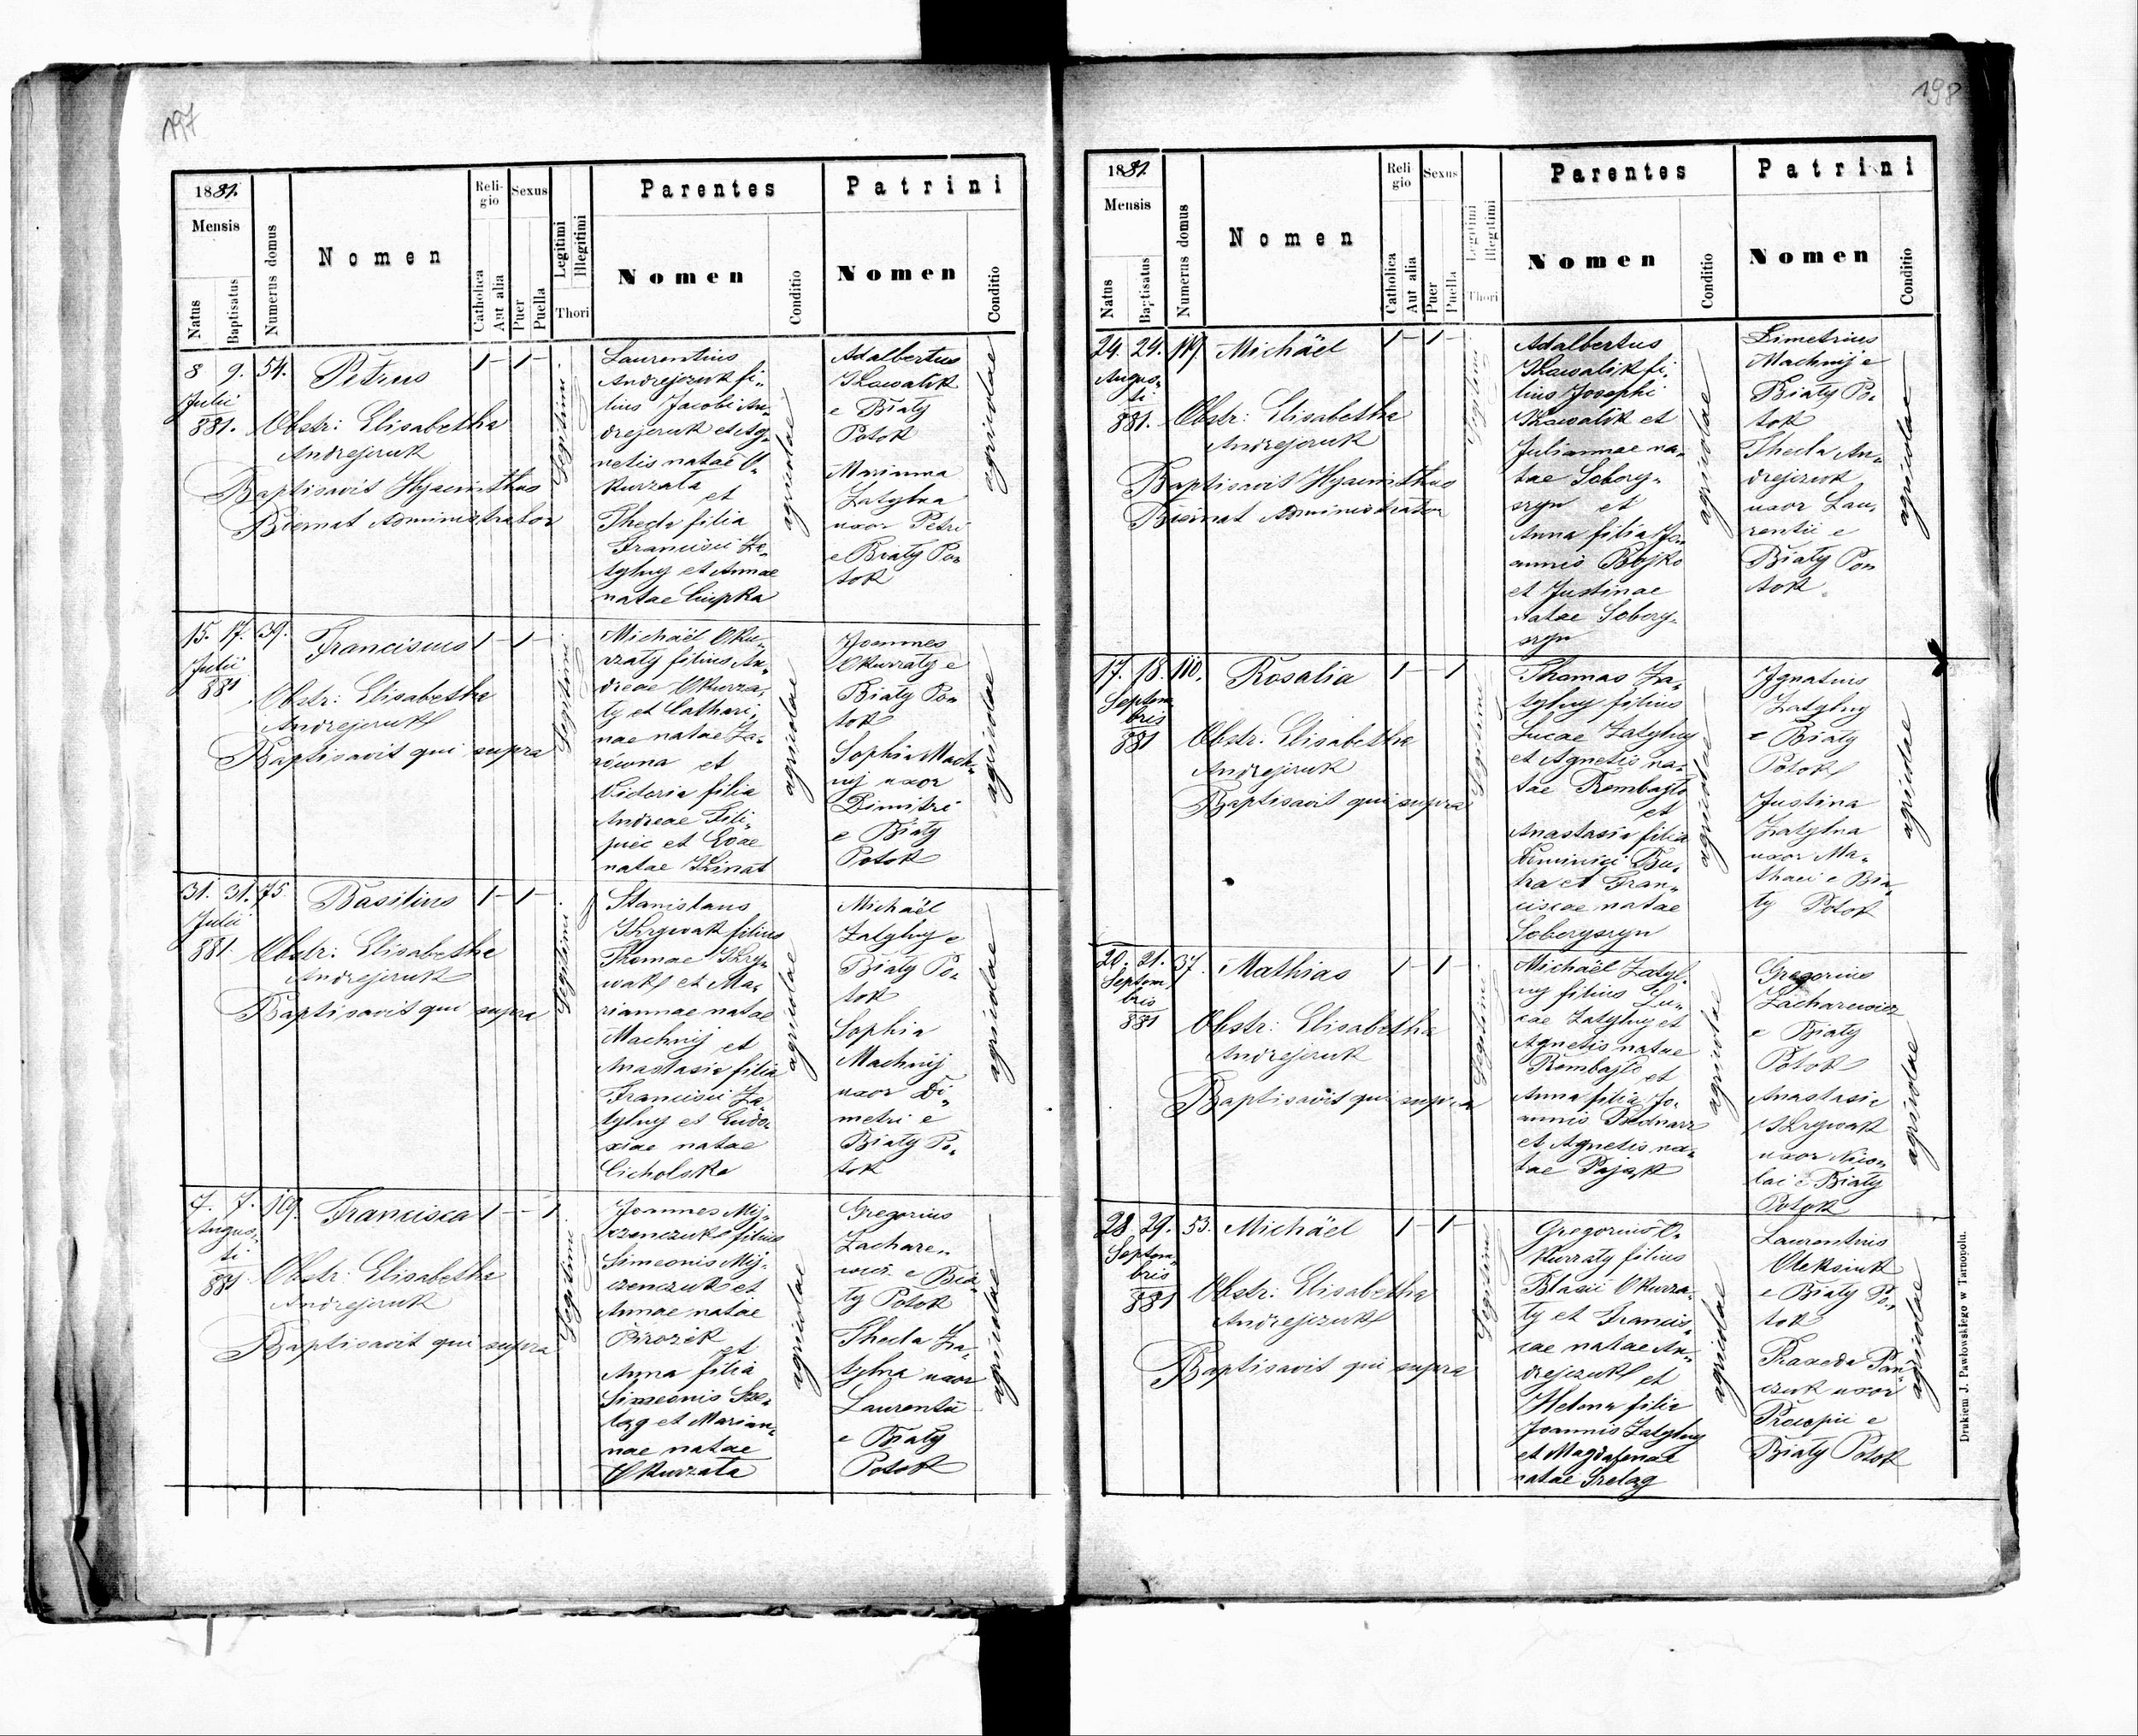 197
1881.
Mensis
Natus
Baptisatus
Numerus domus
Nomen
Religio
Catholica
Aut alia
Sexus
Puer
Puella
Legitimi
Illegitimi
Thori
Parentes
Nomen
Conditio
Patrini
Nomen
Conditio
8 9. 54. Petrus 1 - 1 -
Julii
881.
Obstr: Elisabetha
Andrejczuk
Baptisavit Hyacinthus
Biernat Administrator
Legitimi
Laurentius
Andrejczuk fi-
lius Jacobi An-
drejczuk et Ag-
netis natae O-
kurzata
et
Thecla filia
Francisci Za-
tylny et Annae
natae Ciupka
agricolae
Adalbertus
Kowalik
e Biały
Potok
Marianna
Zatylna
uxor Petri
e Biały Po-
tok
agricolae
15. 17. 39. Franciscus 1 - 1 -
Julii
881
Obstr: Elisabetha
Andrejczuk
Baptisavit qui supra
Legitimi
Michaël Oku-
rzaty filius An-
dreae Okurza-
ty et Cathari-
nae natae
et
Victoria filia
Andreae Fili-
piec et Evae
natae
agricolae
Joannes
Okurzaty e
Biały Po-
tok
Sophia Mach-
nij uxor
Dimitri
e Biały
Potok
agricolae
31. 31. 75. Basilius 1 - 1 -
Julii
881.
Obstr: Elisabetha
Andrejczuk
Baptisavit qui supra
Legitimi
Stanislaus
Skrywak filius
Thomae Skry-
wak et Ma-
riannae natae
Machnij et
Anastasia filia
Francisci Za-
tylny et Eudo-
xiae natae
Cicholska
agricolae
Michaël
Zatylny e
Biały Po-
tok
Sophia
Machnij
uxor Di-
metri e
Biały Po-
tok
agricolae
7. 7. 119. Francisca 1 - - 1
Augus-
ti
881
Obstr: Elisabetha
Andrejczuk
Baptisavit qui supra
Legitimi
Joannes Mij-
filius
Simeonis Mij-
et
Annae natae
et
Anna filia
Simeonis Sze-
ląg et Marian-
nae natae
Okurzata
agricolae
Gregorius
Zachare-
wicz e Bia-
ły Potok
Thecla Za-
tylna uxor
Laurentii
e Biały
Potok
agricolae
198
1881.
Mensis
Natus
Baptisatus
Numerus domus
Nomen
Religio
Catholica
Aut alia
Sexus
Puer
Puella
Legitimi
Illegitimi
Thori
Parentes
Nomen
Conditio
Patrini
Nomen
Conditio
24. 24. 119. Michäel 1 - 1 -
Augus-
ti
881.
Obstr: Elisabetha
Andrejczuk
Baptisavit Hyacinthus
Biernat Administrator
Legitimi
Adalbertus
Kowalik fi-
lius Josephi
Kowalik et
Juliannae na-
tae Sobery-
szyn et
Anna filia Jo-
annis Bojko
et Justinae
natae Sobery-
szyn
agricolae
Dimetrius
Machnij e
Biały Po-
tok
Thecla An-
drejczuk
uxor Lau-
rentii e
Biały Po-
tok
agricolae
17. 18. 110. Rosalia 1 - - 1
Septem-
bris
881
Obstr. Elisabetha
Andrejczuk
Baptisavit qui supra
Legitimi
Thomas Za-
tylny filius
Lucae Zatylny
et Agnetis na-
tae Rembajło
et
Anastasia filia
Dominici Bu-
tra et Fran-
ciscae natae
Soberyszyn
agricolae
Ignatius
Zatylny
e Biały
Potok
Justina
Zatylna
uxor Ma-
thaei e Bia-
ły Potok
agricolae
20. 21. 37. Mathias 1 - 1 -
Septem-
bris
881
Obstr: Elisabetha
Andrejczuk
Baptisavit qui supra
Legitimi
Michäel Zatyl-
ny filius Lu-
cae Zatylny et
Agnetis natae
Rembajło et
Anna filia Jo-
annis Bednarz
et Agnetis na-
tae Pająk
agricolae
Gregorius
Zacharewicz
e Biały
Potok
Anastasia
Skrywak
uxor Nico-
lai e Biały
Potok
agricolae
28. 29. 53. Michäel 1 - 1 -
Septem-
bris
881
Obstr: Elisabetha
Andrejczuk
Baptisavit qui supra
Legitimi
Gregorius O-
kurzaty filius
Blasii Okurza-
ty et Francis-
cae natae An-
drejczuk et
Helena filia
Joannis Zatylny
et Magdalenae
natae Szeląg
agricolae
Laurentius
Oleksiuk
e Biały Po-
tok
Praxeda Pań-
czuk uxor
Procopii e
Biały Potok
agricolae
Drukiem J. Pawłowskiego w Tarnopolu.